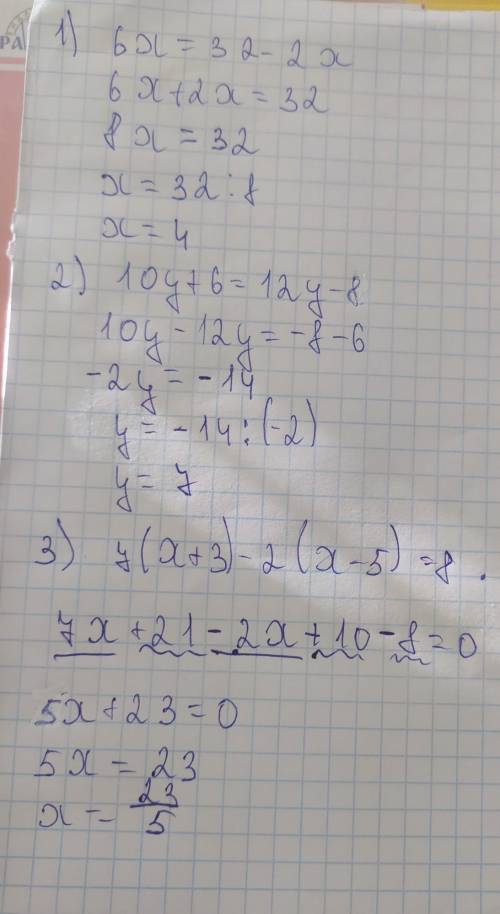 РА
1) 6x = 32 - 2x
6x + 2x = 32
8x = 32
x = 32 : 8
x = 4
2) 10y + 6 = 12y - 8
10y - 12y = -8 - 6
-2y = -14
y = -14 : (-2)
y = 7
3) 7(x + 3) - 2(x - 5) = 8.
7x + 21 - 2x + 10 - 8 = 0
5x + 23 = 0
5x = 23
x = 23/5